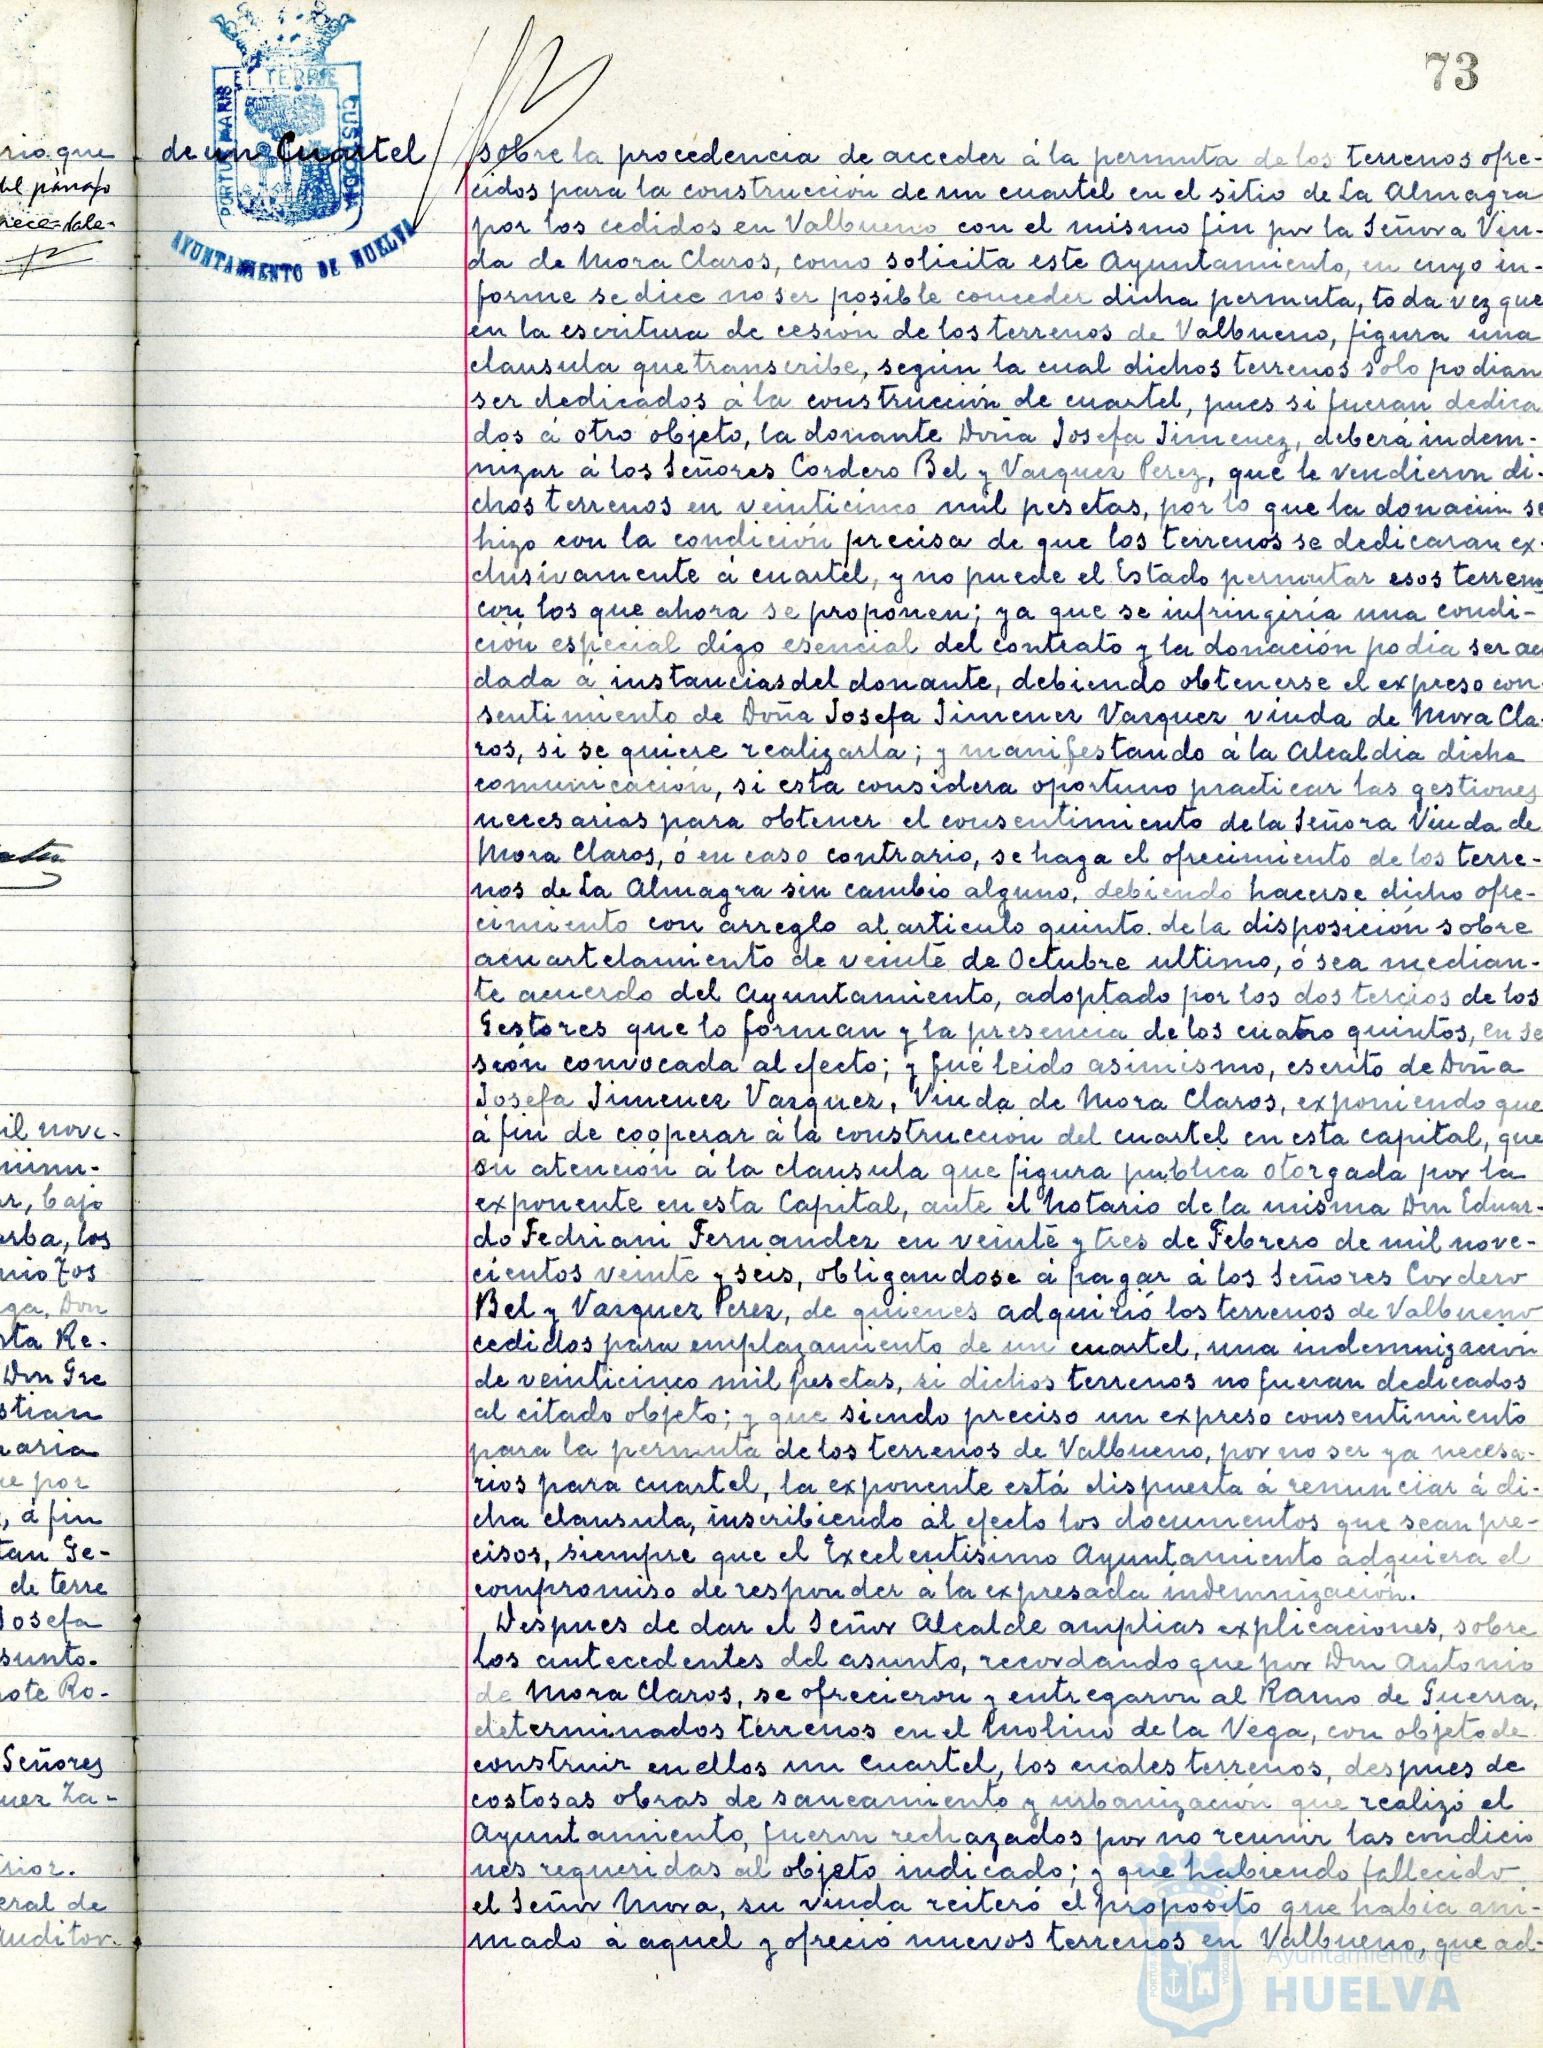 73
ET TERRE
PORTUS MARIS
CUSTODIA
AYUNTAMIENTO DE HUELVA
de un Cuartel
rio que
del párrafo
nil nove-
ar, bajo
arba, los
nio Jos
ga, Don
sta Re-
Don Gre
stian
naria
ue por
, á fin
tan Ge-
de terre
Josefa
sunto.
ote Ro-
Señores
uez Za-
rior.
eral de
Auditor.
sobre la procedencia de acceder á la permuta de los terrenos ofre-
cidos para la construcción de un cuartel en el sitio de La Almagra
por los cedidos en Valbueno con el mismo fin por la Señora Viu-
da de Mora Claros, como solicita este Ayuntamiento, en cuyo in-
forme se dice no ser posible conceder dicha permuta, toda vez que
en la escritura de cesión de los terrenos de Valbueno, figura una
clausula que transcribe, según la cual dichos terrenos solo podian
ser dedicados á la construcción de cuartel, pues si fueran dedica
dos á otro objeto, la donante Doña Josefa Jimenez, deberá indem-
nizar á los Señores Cordero Bel y Vazquez Perez, que le vendieron di-
chos terrenos en veinticinco mil pesetas, por lo que la donación se
hizo con la condición precisa de que los terrenos se dedicaran ex-
clusivamente á cuartel, y no puede el Estado permutar esos terrenos
con los que ahora se proponen; ya que se infringiría una condi-
ción especial digo esencial del contrato y la donación podia ser an
dada á instancias del donante, debiendo obtenerse el expreso con-
sentimiento de Doña Josefa Jimenez Vazquez viuda de Mora Cla-
ros, si se quiere realizarla; y manifestando á la Alcaldia dicha
comunicación, si esta considera oportuno practicar las gestiones
necesarias para obtener el consentimiento de la Señora Viuda de
Mora Claros, ó en caso contrario, se haga el ofrecimiento de los terre-
nos de La Almagra sin cambio alguno, debiendo hacerse dicho ofre-
cimiento con arreglo al articulo quinto de la disposición sobre
acuartelamiento de veinte de Octubre ultimo, ó sea median-
te acuerdo del Ayuntamiento, adoptado por los dos tercios de los
Gestores que lo forman y la presencia de los cuatro quintos, en se
sión convocada al efecto; y fué leido asimismo, escrito de Doña
Josefa Jimenez Vazquez, Viuda de Mora Claros, exponiendo que
á fin de cooperar á la construcción del cuartel en esta capital, que
en atención á la clausula que figura publica otorgada por la
exponente en esta Capital, ante el Notario de la misma Don Eduar-
do Fedriani Fernandez en veinte y tres de Febrero de mil nove-
cientos veinte y seis, obligandose á pagar á los Señores Cordero
Bel y Vazquez Perez, de quienes adquirió los terrenos de Valbueno
cedidos para emplazamiento de un cuartel, una indemnización
de veinticinco mil pesetas, si dichos terrenos no fueran dedicados
al citado objeto; y que siendo preciso un expreso consentimiento
para la permuta de los terrenos de Valbueno, por no ser ya necesa-
rios para cuartel, la exponente está dispuesta á renunciar á di-
cha clausula, inscribiendo al efecto los documentos que sean pre-
cisos, siempre que el Excelentisimo Ayuntamiento adquiera el
compromiso de responder á la expresada indemnización.
Despues de dar el Señor Alcalde amplias explicaciones, sobre
los antecedentes del asunto, recordando que por Don Antonio
de Mora Claros, se ofrecieron y entregaron al Ramo de Guerra,
determinados terrenos en el Molino de la Vega, con objeto de
construir en ellos un cuartel, los cuales terrenos, despues de
costosas obras de saneamiento y urbanización que realizó el
Ayuntamiento, fueron rechazados por no reunir las condicio
nes requeridas al objeto indicado; y que habiendo fallecido
el Señor Mora, su viuda reiteró el proposito que habia ani-
mado á aquel y ofreció nuevos terrenos en Valbueno, que ad-
Ayuntamiento de
HUELVA